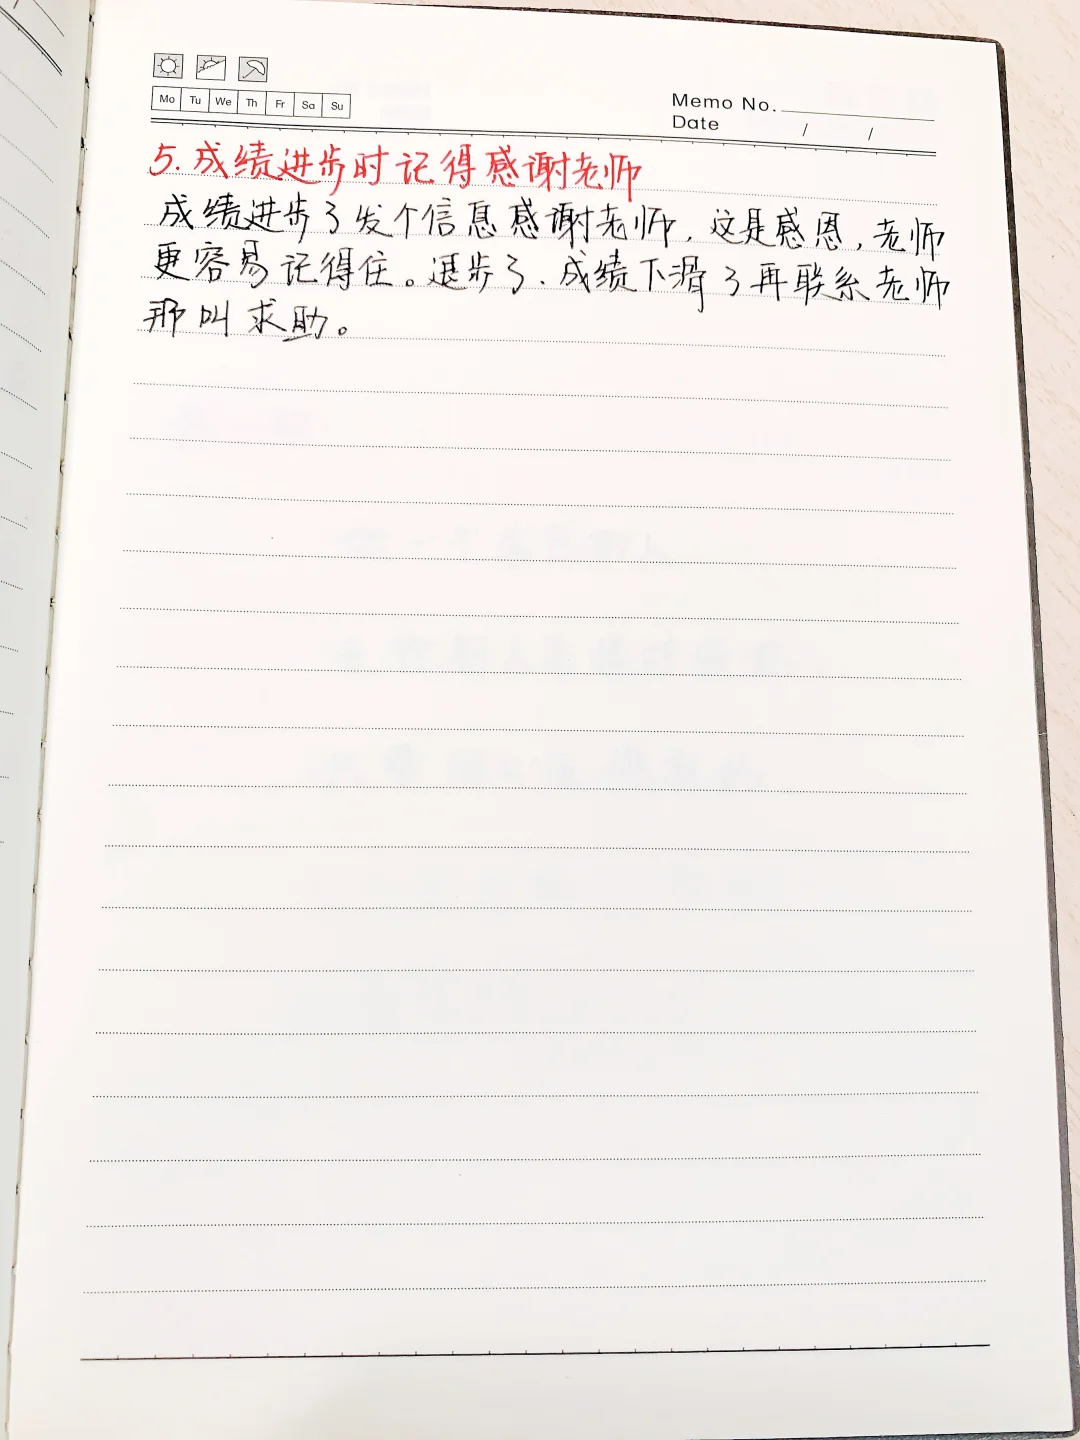 Mo Tu We Th Fr Sa Su
Memo No.
Date / /
5.成绩进步时记得感谢老师
成绩进步了发个信息感谢老师,这是感恩,老师
更容易记得住。退步了、成绩下滑了再联系老师
那叫求助。